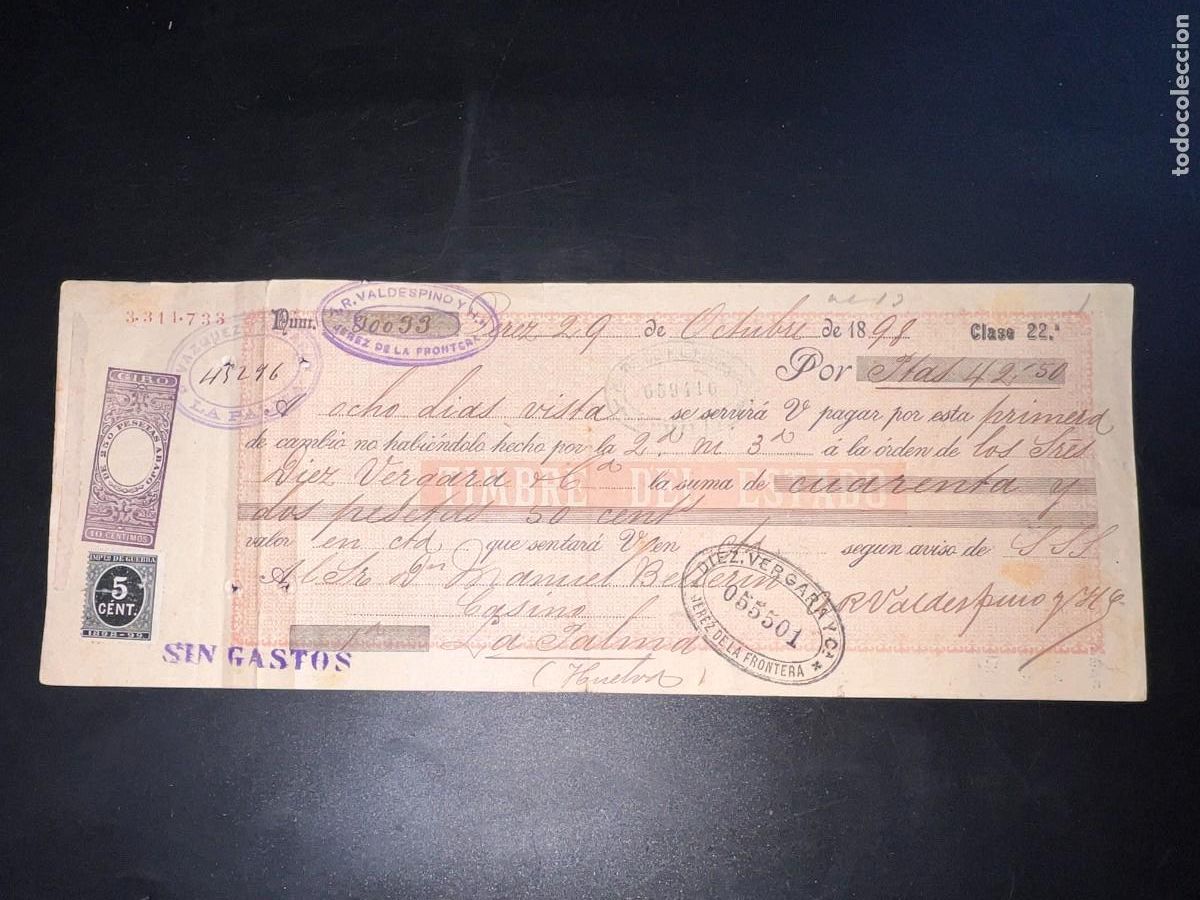 todocoleccion
3.311.733
Núm. 90093
R. VALDESPINO Y
JEREZ DE LA FRONTERA
Jerez 29 de Octubre de 1898 Clase 22.ª
VAZQUEZ
45296
LA PA
659416
Por Ptas 42,50
A ocho dias vista se servirá V pagar por esta primera
de cambio no habiéndolo hecho por la 2ª ni 3ª á la órden de los Sres
Diez Vergara & Cª la suma de cuarenta y
TIMBRE DEL ESTADO
dos pesetas 50 cent
valor en cta que sentará V en cta segun aviso de SSS
Al Sr Dn Manuel
Casino
La Palma
(Huelva)
R Valdespino y Hº
DIEZ, VERGARA Y Cª
055501
JEREZ DE LA FRONTERA
GIRO
DE 250 PESETAS ABAJO
10 CENTIMOS
IMPTO DE GUERRA
5
CENT.
1898-99
SIN GASTOS